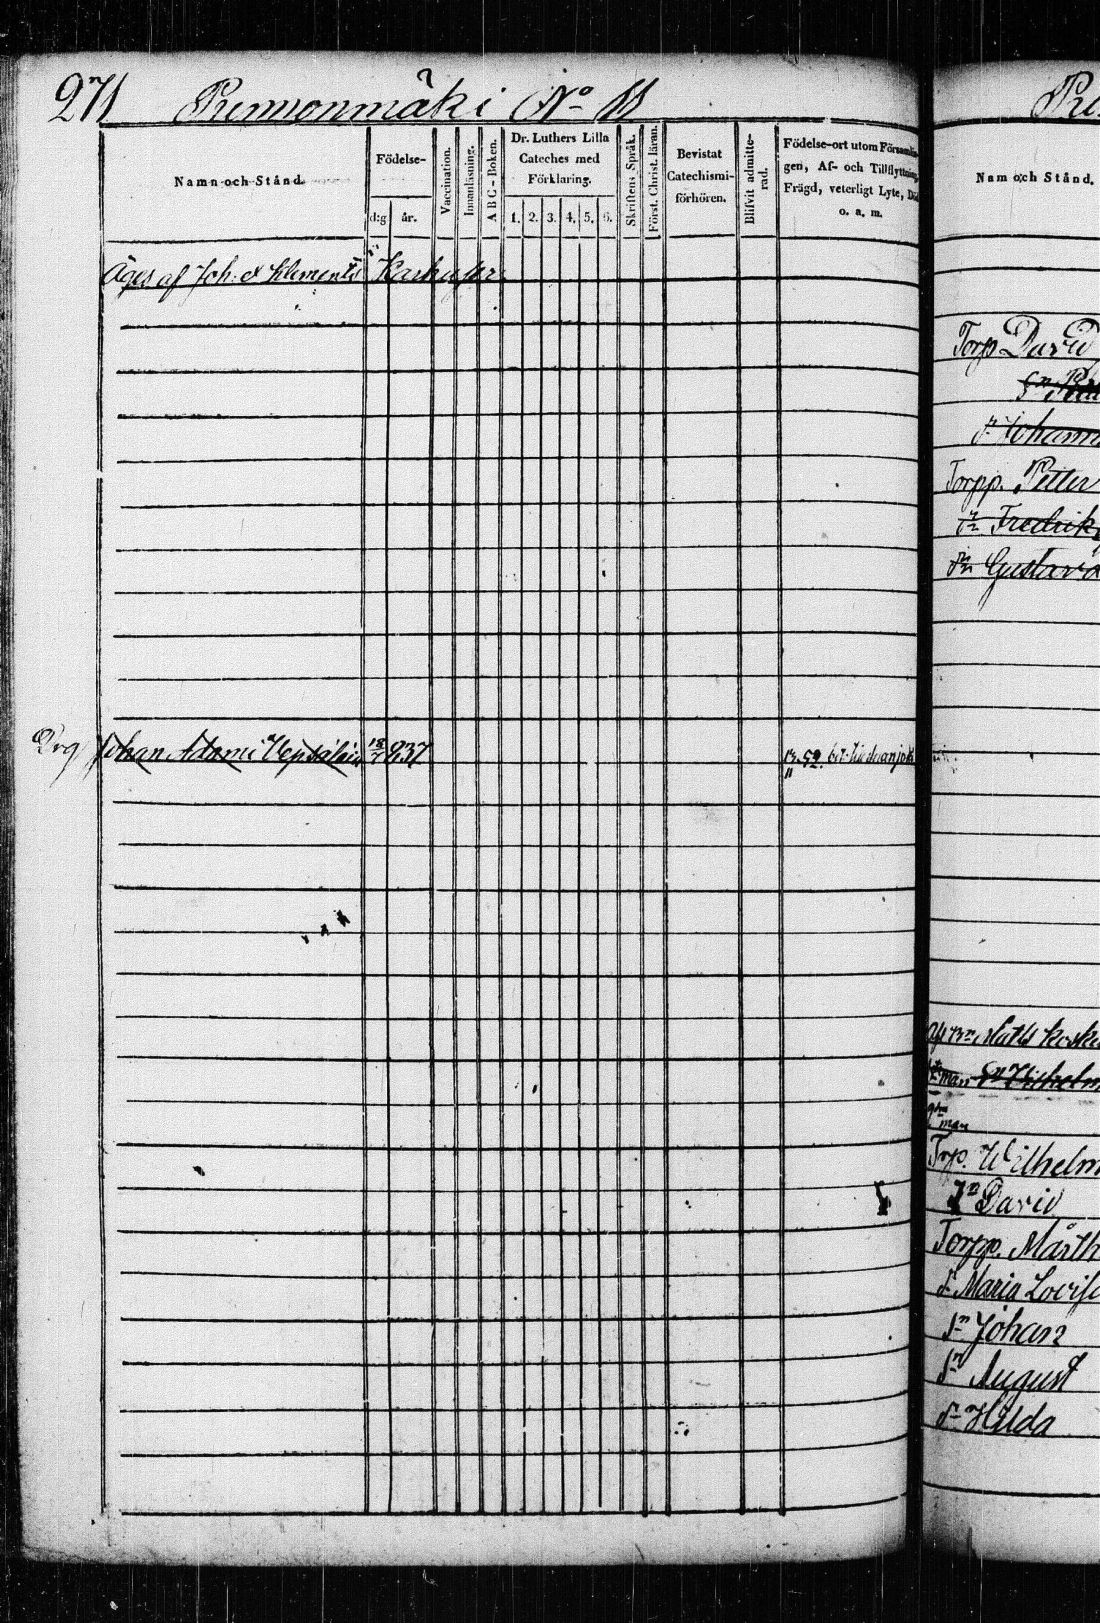 271 No 11
Namn och Stånd.
Födelse-
d:g
år.
Vaccination.
Innanläsning.
ABC-Boken.
Dr. Luthers Lilla
Cateches med
Förklaring.
1. 2. 3. 4. 5. 6.
Skriftens Språk.
Först. Christ. läran.
Bevistat
Catechismi-
förhören.
Blifvit admitte-
rad.
Födelse-ort utom Församlin-
gen, Af- och Tillflyttning,
Frägd, veterligt Lyte, Död
o. a. m.
Äges af Joh: & Klemens
Johan Adami 837
52.
Nam och Stånd.
Torp David
Johann
Torpp. Petter
Fredrik
Gustava
Matts
Wilhelm
man
Trp. Wilhelm
Sn David
Torpp. Märth
Maria Lovisa
Sn Johan
Sn August
Hilda